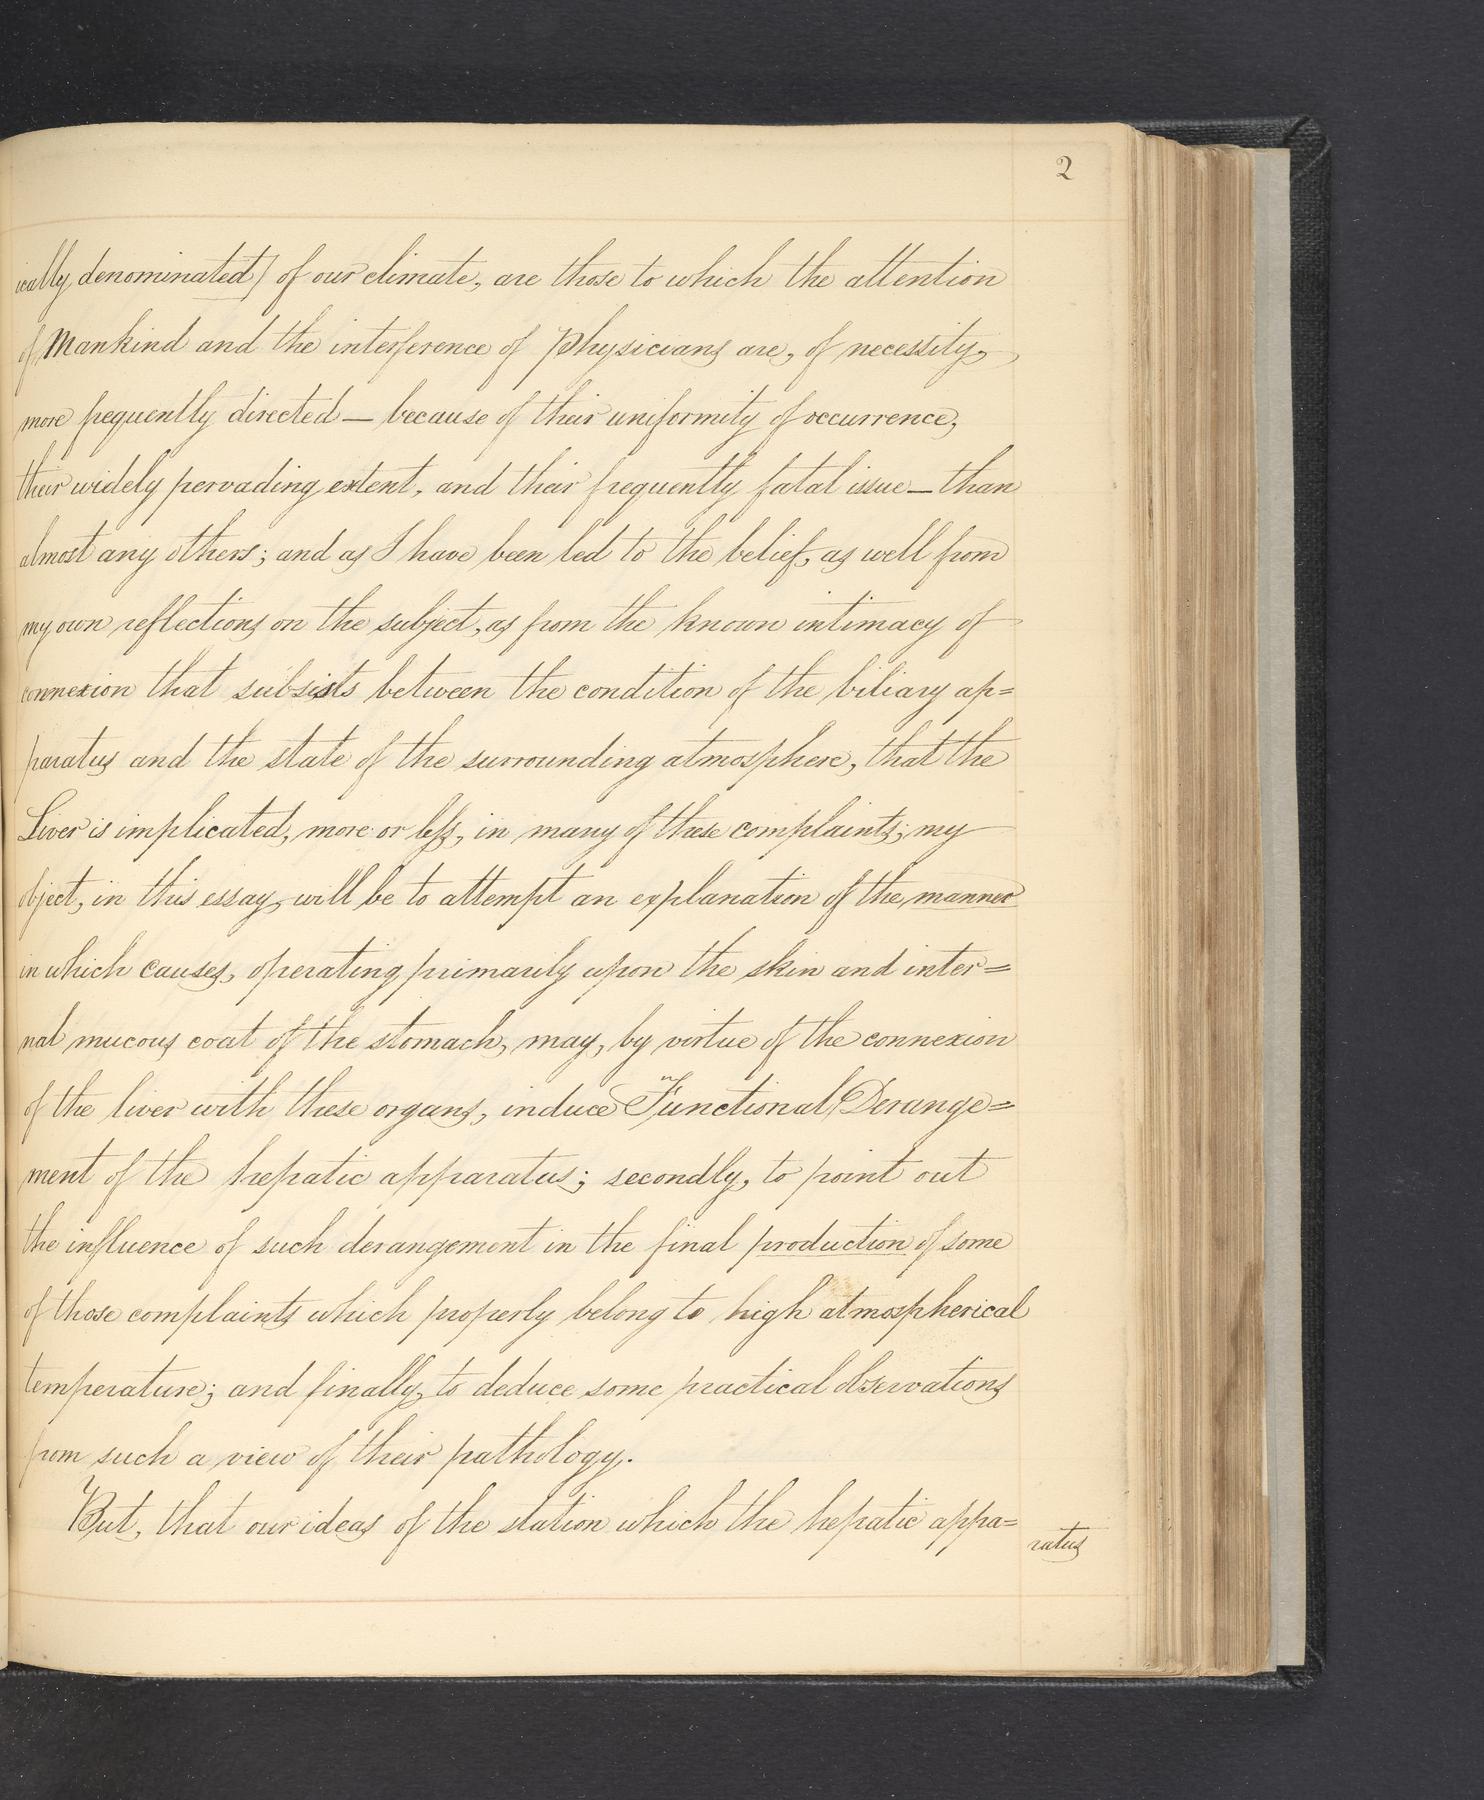 2
ically denominated) of our climate, are those to which the attention
of Mankind and the interference of Physicians are, of necessity,
more frequently directed — because of their uniformity of occurrence,
their widely pervading extent, and their frequently fatal issue — than
almost any others; and as I have been led to the belief, as well from
my own reflections on the subject, as from the known intimacy of
connexion that subsists between the condition of the biliary ap=
paratus and the state of the surrounding atmosphere, that the
Liver is implicated, more or less, in many of these complaints; my
object, in this essay, will be to attempt an explanation of the manner
in which causes, operating primarily upon the skin and inter=
nal mucous coat of the stomach, may, by virtue of the connexion
of the liver with these organs, induce Functional Derange=
ment of the hepatic apparatus; secondly, to point out
the influence of such derangement in the final production of some
of those complaints which properly belong to high atmospherical
temperature; and finally, to deduce some practical observations
from such a view of their pathology.
But, that our ideas of the station which the hepatic appa=
ratus